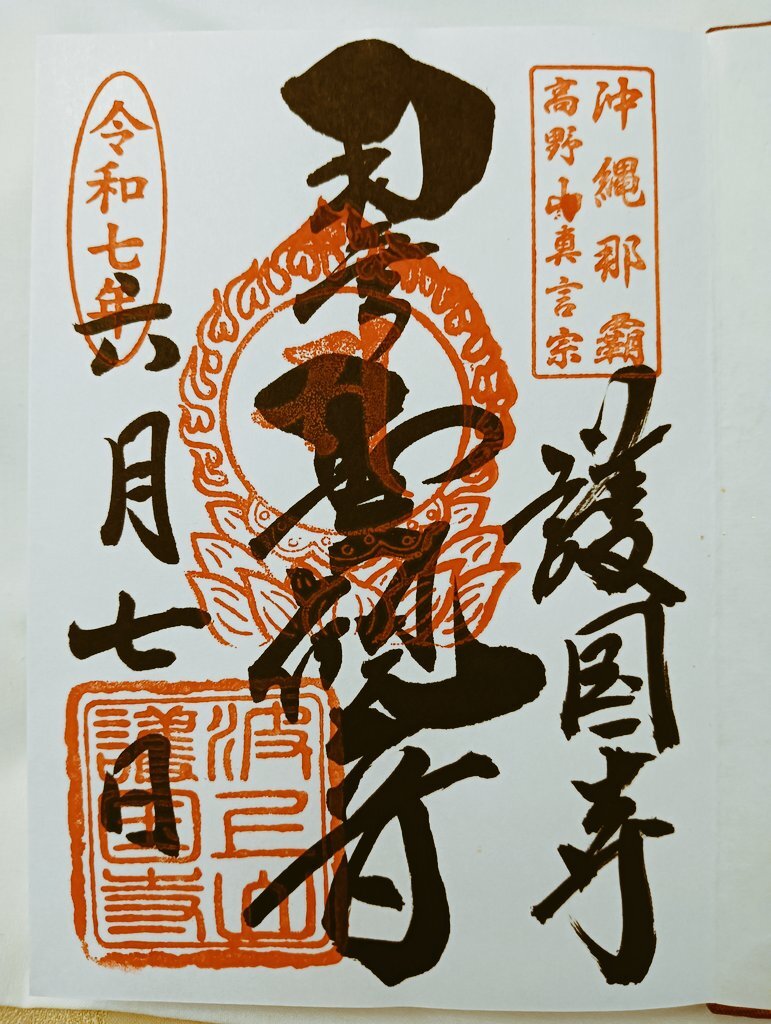 沖縄那覇
高野山真言宗
護国寺
聖観
令和七年
六月七日
波上山
護国寺